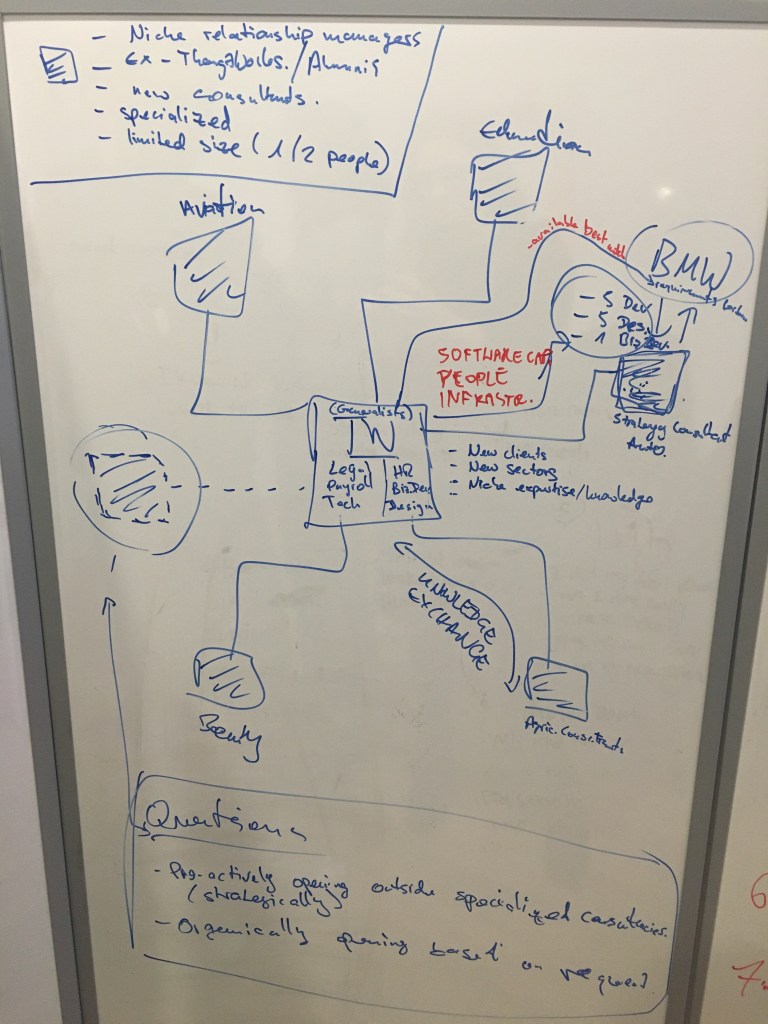 - Niche relationship managers
- Ex - ThougtWorks. / Alumnis
- new consultants.
- specialized
- limited size (1/2 people)
Education
Aviation
- available best addt
BMW
requirements
- 5 Dev.
- 5 Des.
- 1 BizDev.
SOFTWARE CAP.
PEOPLE
INFRASTR.
Strategy Consultant
Auto.
(Generalists)
TW
Legal
Payroll
Tech
HR
BizDev
Design
- New clients
- New sectors
- Niche expertise/knowledge
KNWLEDGE
EXCHANGE
Beauty
Agric. Consultants
Questions
- Pro-actively opening outside specialized consultancies.
(strategically)
- Organically opening based on request.
6
7